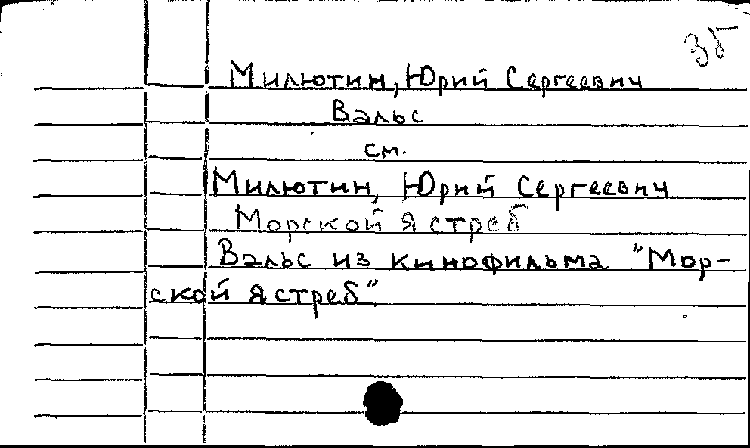 3б
Милютин, Юрий Сергеевич
Вальс
см.
Милютин, Юрий Сергеевич
Морской ястреб
Вальс из кинофильма "Мор-
ской ястреб"